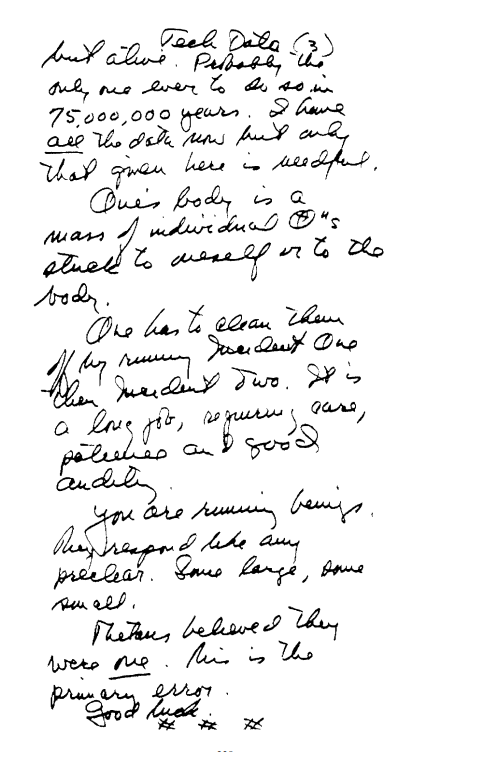 Tech Data (3)
but alive. Probably the
only one ever to do so in
75,000,000 years. I have
all the data now but only
that given here is needful.
One's body is a
mass of individual Θ"s
stuck to oneself or to the
body.
One has to clean them
off by running Incident One
then Incident Two. It is
a long job, requiring care,
patience and good
auditing.
You are running beings.
They respond like any
preclear. Some large, some
small.
Thetans believed they
were one. This is the
primary error.
Good luck.
# # #